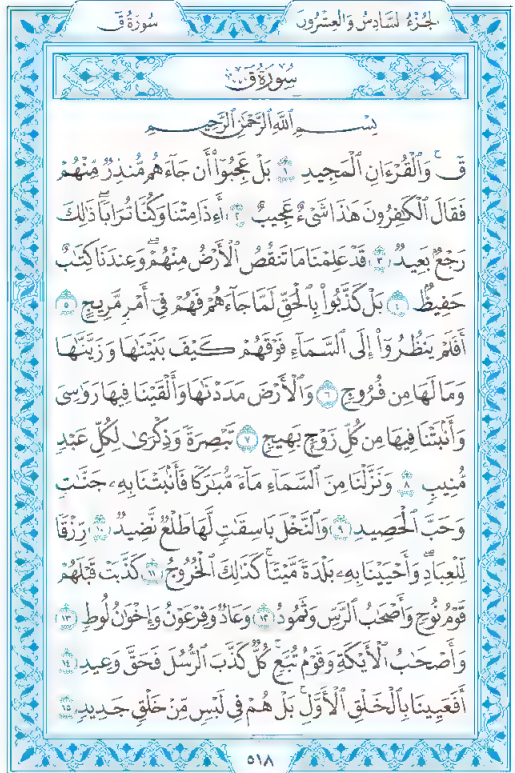 الجزء السادس والعشرون
سورة ق
سورة ق
بسم الله الرحمن الرحيم
قٓ وَالْقُرْءَانِ الْمَجِيدِ ١ بَلْ عَجِبُوٓا۟ أَن جَآءَهُم مُّنذِرٌ مِّنْهُمْ
فَقَالَ الْكَٰفِرُونَ هَٰذَا شَىْءٌ عَجِيبٌ ٢ أَءِذَا مِتْنَا وَكُنَّا تُرَابًا ۖ ذَٰلِكَ
رَجْعٌۢ بَعِيدٌ ٣ قَدْ عَلِمْنَا مَا تَنقُصُ الْأَرْضُ مِنْهُمْ ۖ وَعِندَنَا كِتَٰبٌ
حَفِيظٌۢ ٤ بَلْ كَذَّبُوا۟ بِالْحَقِّ لَمَّا جَآءَهُمْ فَهُمْ فِىٓ أَمْرٍ مَّرِيجٍ ٥
أَفَلَمْ يَنظُرُوٓا۟ إِلَى السَّمَآءِ فَوْقَهُمْ كَيْفَ بَنَيْنَٰهَا وَزَيَّنَّٰهَا
وَمَا لَهَا مِن فُرُوجٍ ٦ وَالْأَرْضَ مَدَدْنَٰهَا وَأَلْقَيْنَا فِيهَا رَوَٰسِىَ
وَأَنۢبَتْنَا فِيهَا مِن كُلِّ زَوْجٍۭ بَهِيجٍ ٧ تَبْصِرَةً وَذِكْرَىٰ لِكُلِّ عَبْدٍ
مُّنِيبٍ ٨ وَنَزَّلْنَا مِنَ السَّمَآءِ مَآءً مُّبَٰرَكًا فَأَنۢبَتْنَا بِهِۦ جَنَّٰتٍ
وَحَبَّ الْحَصِيدِ ٩ وَالنَّخْلَ بَاسِقَٰتٍ لَّهَا طَلْعٌ نَّضِيدٌ ١٠ رِّزْقًا
لِّلْعِبَادِ ۖ وَأَحْيَيْنَا بِهِۦ بَلْدَةً مَّيْتًا ۚ كَذَٰلِكَ الْخُرُوجُ ١١ كَذَّبَتْ قَبْلَهُمْ
قَوْمُ نُوحٍ وَأَصْحَٰبُ الرَّسِّ وَثَمُودُ ١٢ وَعَادٌ وَفِرْعَوْنُ وَإِخْوَٰنُ لُوطٍ ١٣
وَأَصْحَٰبُ الْأَيْكَةِ وَقَوْمُ تُبَّعٍ ۚ كُلٌّ كَذَّبَ الرُّسُلَ فَحَقَّ وَعِيدِ ١٤
أَفَعَيِينَا بِالْخَلْقِ الْأَوَّلِ ۚ بَلْ هُمْ فِى لَبْسٍ مِّنْ خَلْقٍ جَدِيدٍ ١٥
٥١٨